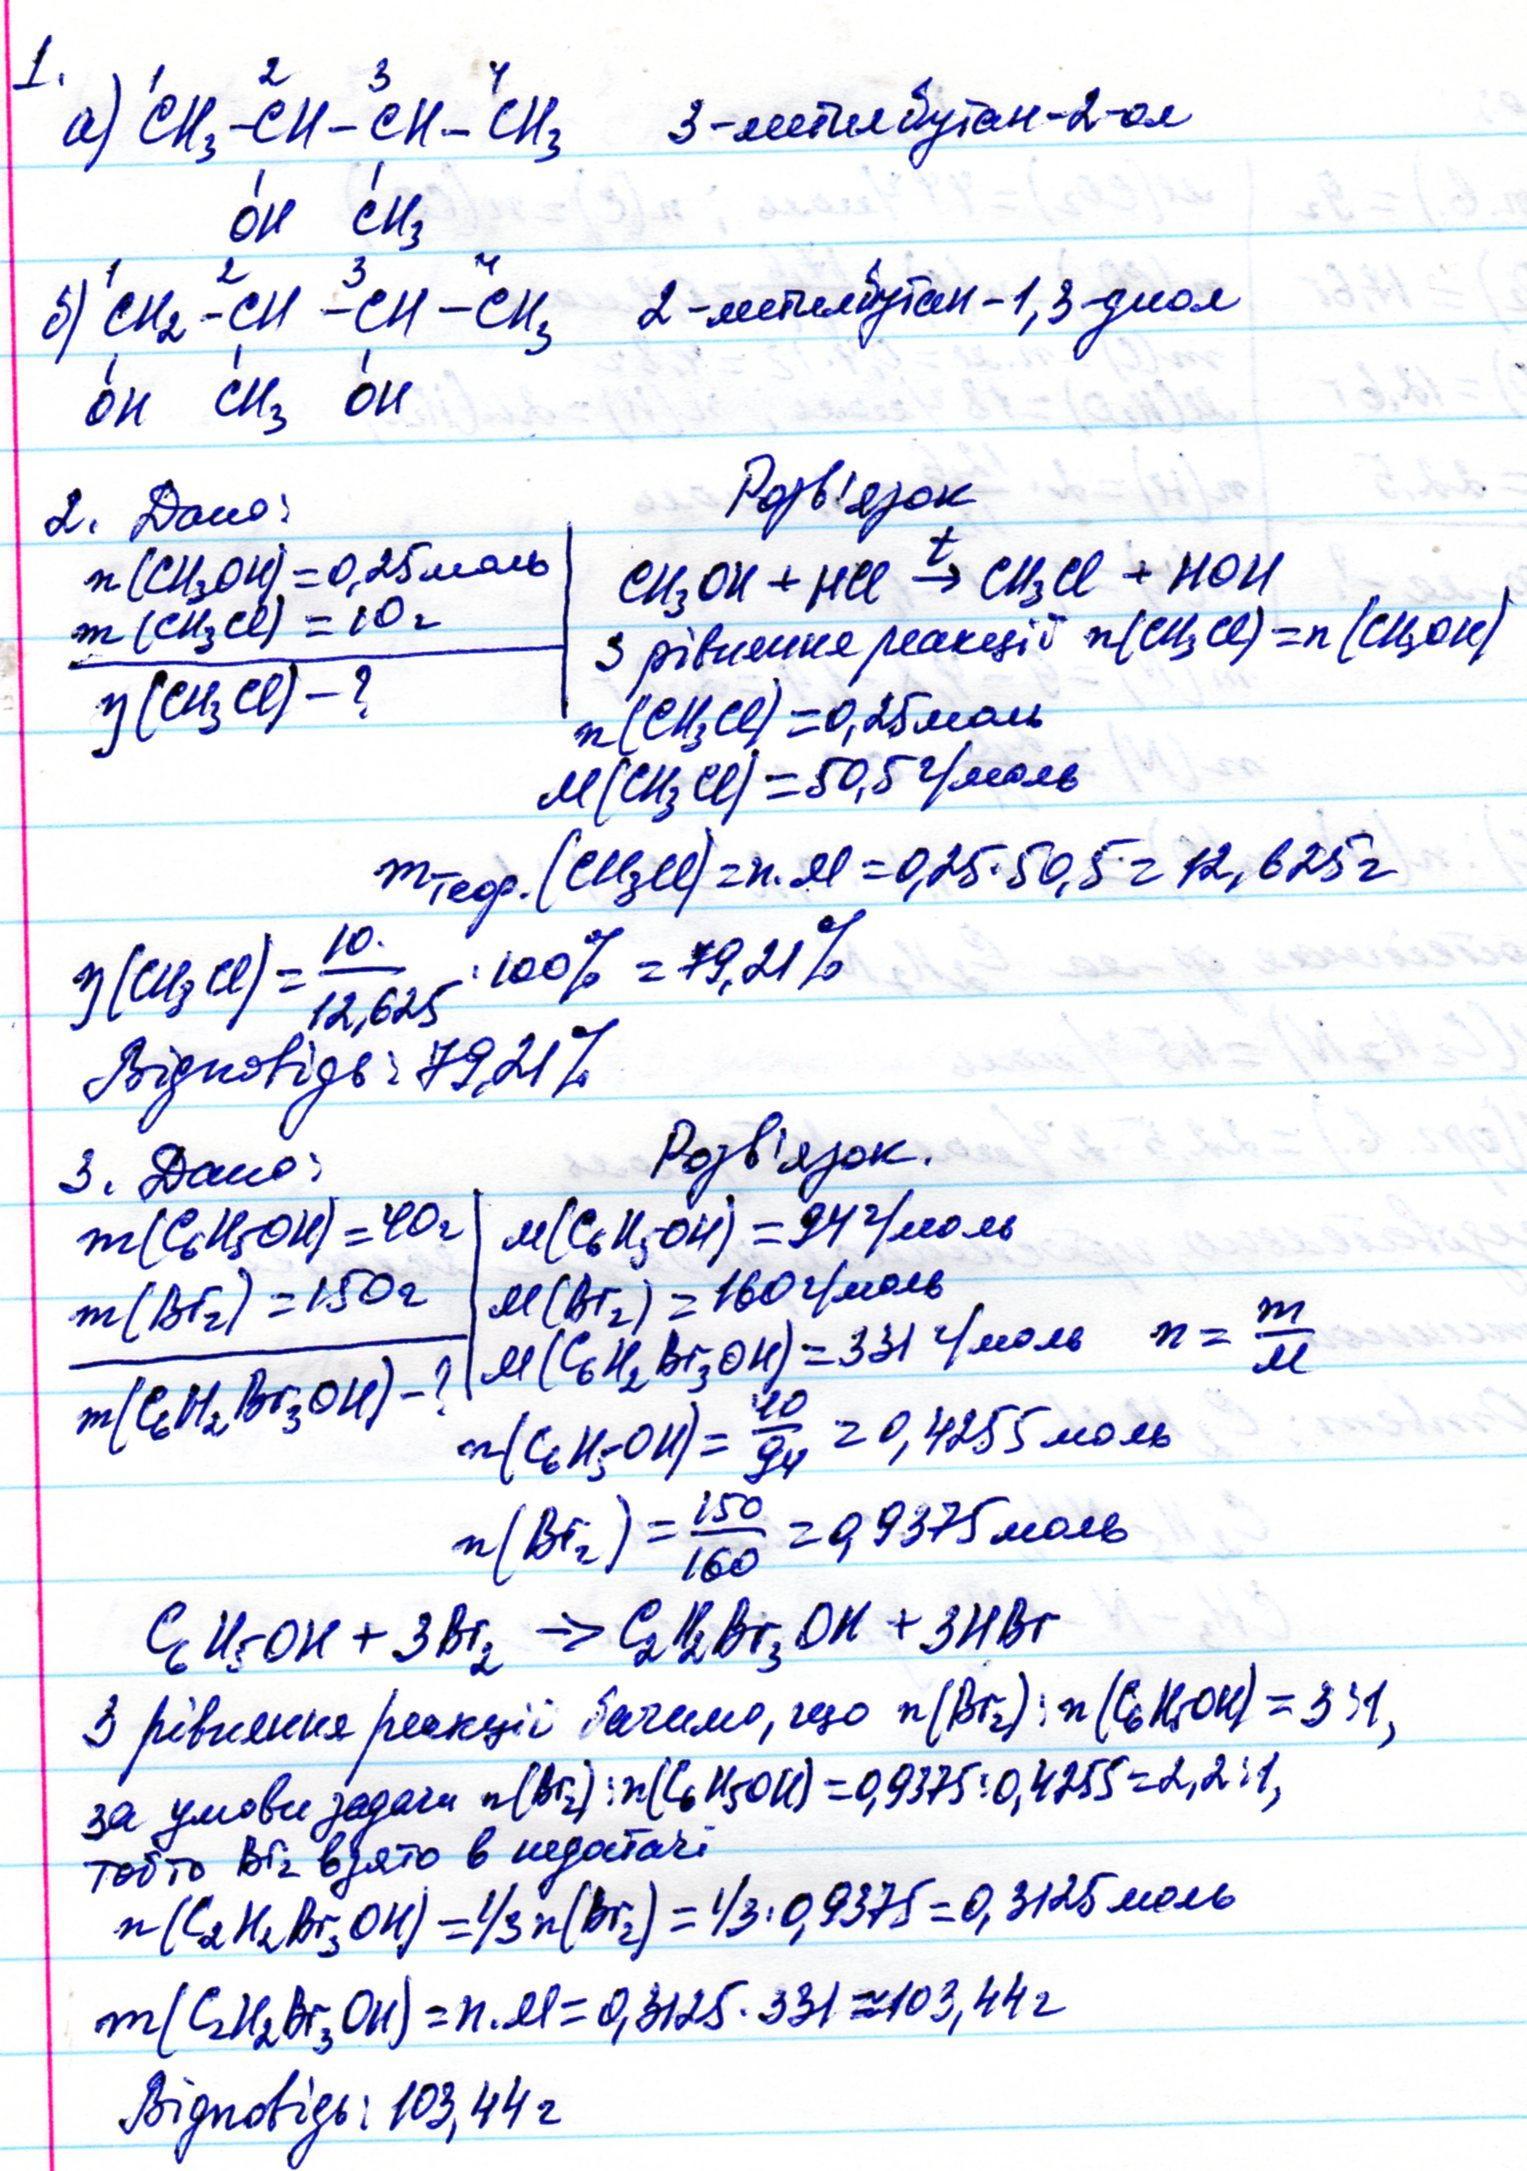 1.
1 2 3 4
а) CH3-CH-CH-CH3 3-метилбутан-2-ол
OH CH3
1 2 3 4
б) CH2-CH-CH-CH3 2-метилбутан-1,3-диол
OH CH3 OH
2. Дано: Розв'язок
n(CH3OH)=0,25моль CH3OH + HCl t→ CH3Cl + HOH
m(CH3Cl)=10г З рівнення реакції n(CH3Cl)=n(CH3OH)
η(CH3Cl)-? n(CH3Cl)=0,25моль
M(CH3Cl)=50,5г/моль
mтеор.(CH3Cl)=n·M=0,25·50,5=12,625г
η(CH3Cl)=10/12,625·100%=79,21%
Відповідь: 79,21%
3. Дано: Розв'язок.
m(C6H5OH)=40г M(C6H5OH)=94г/моль
m(Br2)=150г M(Br2)=160г/моль
m(C6H2Br3OH)-? M(C6H2Br3OH)=331г/моль n=m/M
n(C6H5OH)=40/94=0,4255моль
n(Br2)=150/160=0,9375моль
C6H5OH + 3Br2 → C2H2Br3OH + 3HBr
З рівнення реакції бачимо, що n(Br2):n(C6H5OH)=3:1,
за умови задачи n(Br2):n(C6H5OH)=0,9375:0,4255=2,2:1,
тобто Br2 взято в недотачі
n(C2H2Br3OH)=1/3n(Br2)=1/3·0,9375=0,3125моль
m(C2H2Br3OH)=n·M=0,3125·331≈103,44г
Відповідь: 103,44г